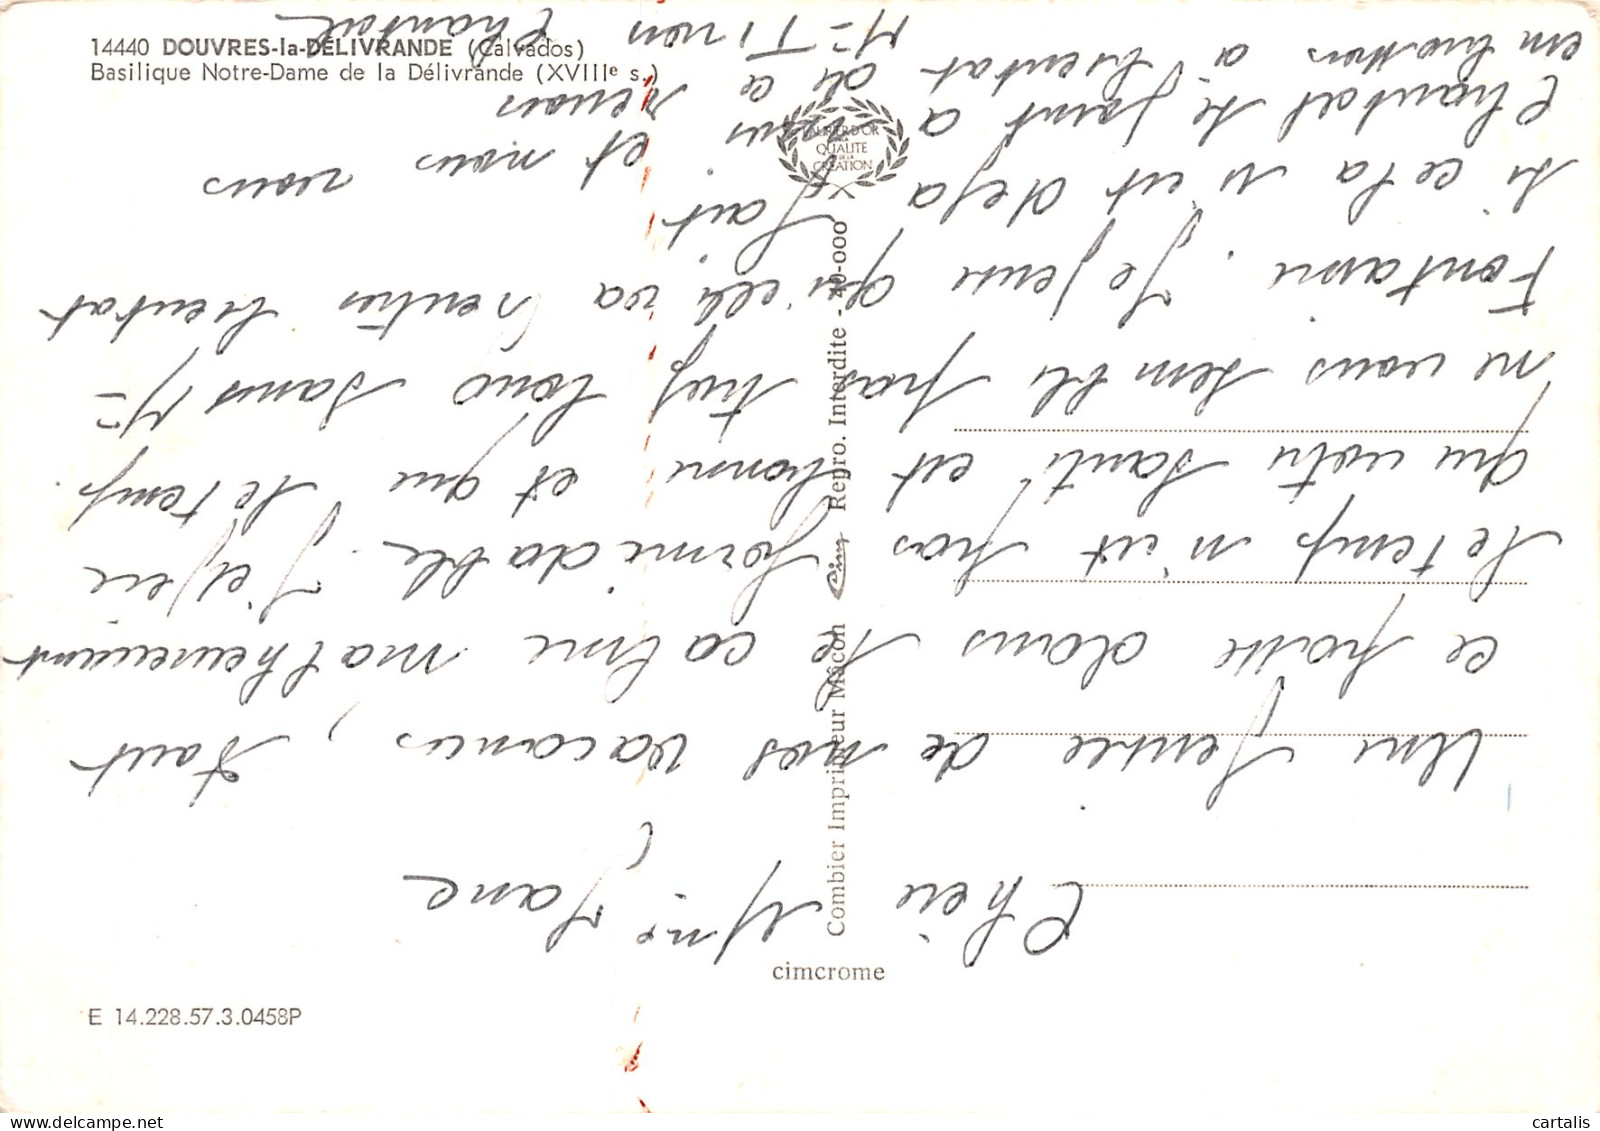 14440 DOUVRES-la-DÉLIVRANDE (Calvados)
Basilique Notre-Dame de la Délivrande (XVIIIe s.)
LAURIER D'OR
DE LA
QUALITÉ
DE LA
CRÉATION
Combier Imprimeur Mâcon Cim Repro. Interdite - 49-000
cimcrome
E 14.228.57.3.0458P
Chère Mme Jane
Une partie de nos vacances, s'est
passée dans le calme malheureusement
le temps n'est pas formidable. J'espère
que votre santé est bonne et que le temps
ne vous semble pas trop long sans Me
Fontaine. Je pense qu'elle va rentrer bientôt
si cela n'est déjà fait.
Chantal se joint à nous
et nous vous
embrassons à bientôt
Me Tinon
Chantal
cartalis
delcampe.net